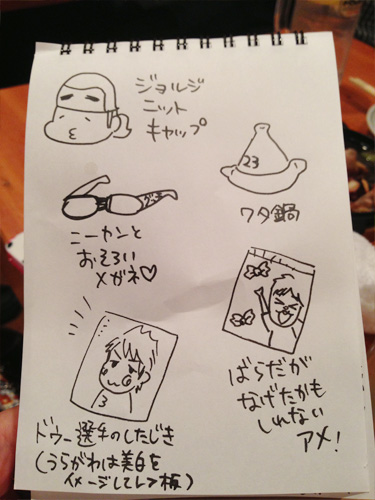 ジョルジ
ニット
キャップ
23
ワタ鍋
ニーヤンと
おそろい
メガネ♡
ばらだが
なげたかも
しれない
アメ!
3
ドゥー選手のしたじき
(うらがわは美白を
イメージしてレフ板)